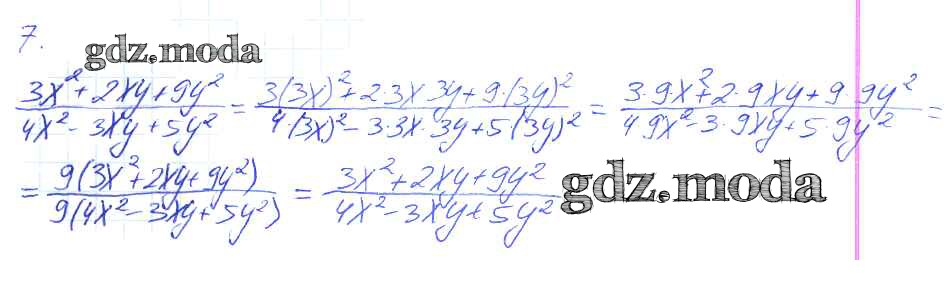 7.
gdz.moda
(3x² + 2xy + 9y²)/(4x² - 3xy + 5y²) = (3(3x)² + 2·3x·3y + 9·(3y)²)/(4·(3x)² - 3·3x·3y + 5(3y)²) = (3·9·x² + 2·9xy + 9·9y²)/(4·9x² - 3·9xy + 5·9y²) =
= (9(3x² + 2xy + 9y²))/(9(4x² - 3xy + 5y²)) = (3x² + 2xy + 9y²)/(4x² - 3xy + 5y²) gdz.moda